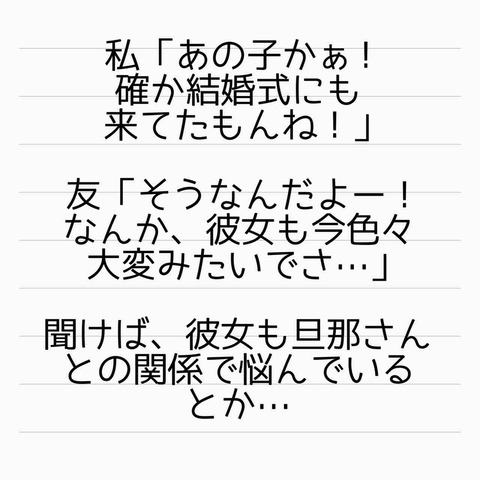 私「あの子かぁ！
確か結婚式にも
来てたもんね！」
友「そうなんだよー！
なんか、彼女も今色々
大変みたいでさ…」
聞けば、彼女も旦那さん
との関係で悩んでいる
とか…